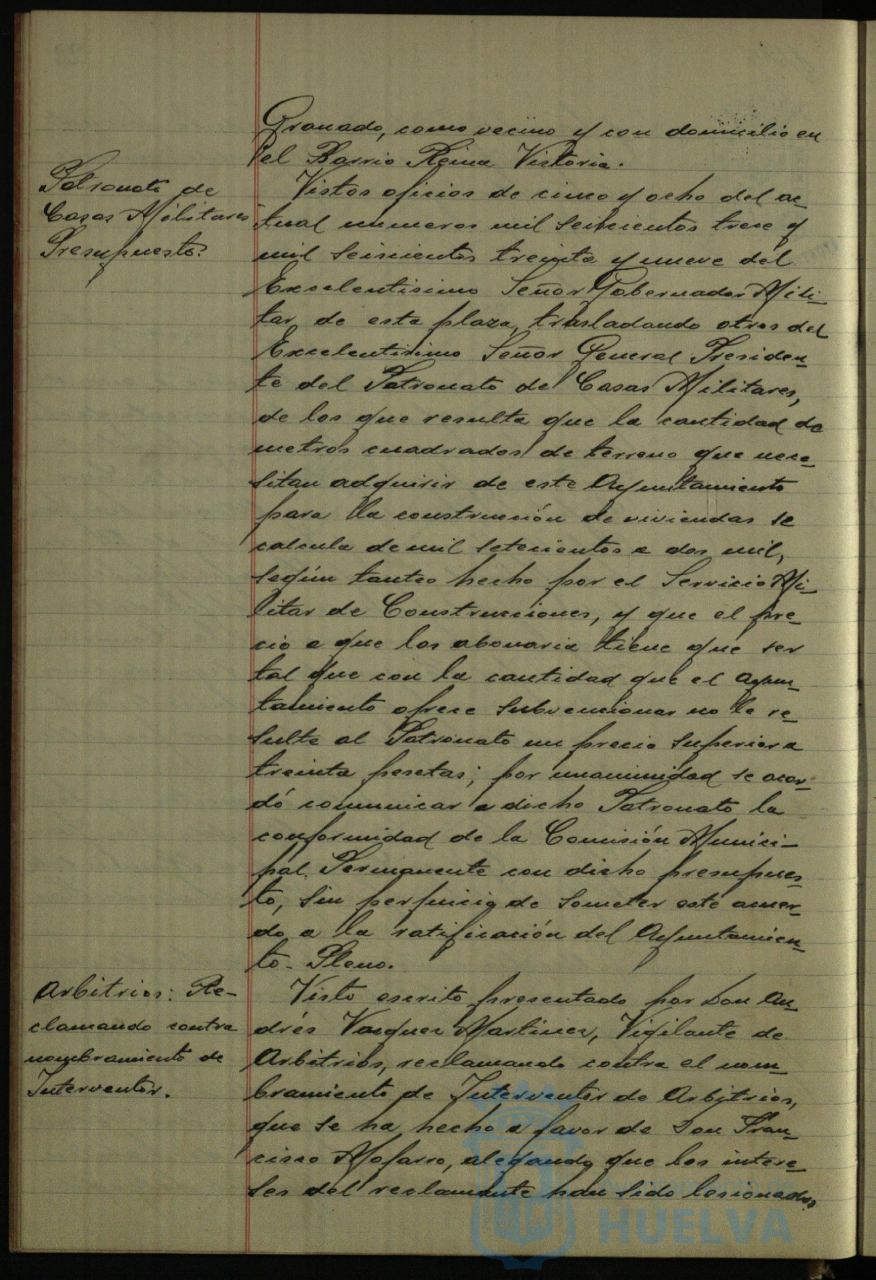 Granado, como vecino y con domicilio en
el Barrio Reina Victoria.
Patronato de
Casas Militares
Presupuesto.
Vistos oficios de cinco y ocho del ac-
tual numeros mil seiscientos trece y
mil seiscientos treinta y nueve del
Excelentisimo Señor Gobernador Mili-
tar de esta plaza, trasladando otros del
Excelentisimo Señor General Presiden-
te del Patronato de Casas Militares,
de los que resulta que la cantidad de
metros cuadrados de terreno que nece-
sitan adquirir de este Ayuntamiento
para la construcción de viviendas se
calcula de mil setecientos a dos mil,
según tanteo hecho por el Servicio Mi-
litar de Construcciones, y que el pre-
cio a que los abonaria tiene que ser
tal que con la cantidad que el Ayun-
tamiento ofrece subvencionar no le re-
sulte al Patronato un precio superior a
treinta pesetas; por unanimidad se acor-
dó comunicar a dicho Patronato la
conformidad de la Comisión Munici-
pal Permanente con dicho presupues-
to, sin perjuicio de someter este acuer-
do a la ratificación del Ayuntamien-
to-Pleno.
Arbitrios: Re-
clamando contra
nombramiento de
Interventor.
Visto escrito presentado por Don An-
drés Vazquez Martinez, Vigilante de
Arbitrios, reclamando contra el nom-
bramiento de Interventor de Arbitrios,
que se ha hecho a favor de Don Fran-
cisco Mofarro, alegando que los intere-
ses del reclamante han sido lesionados
HUELVA